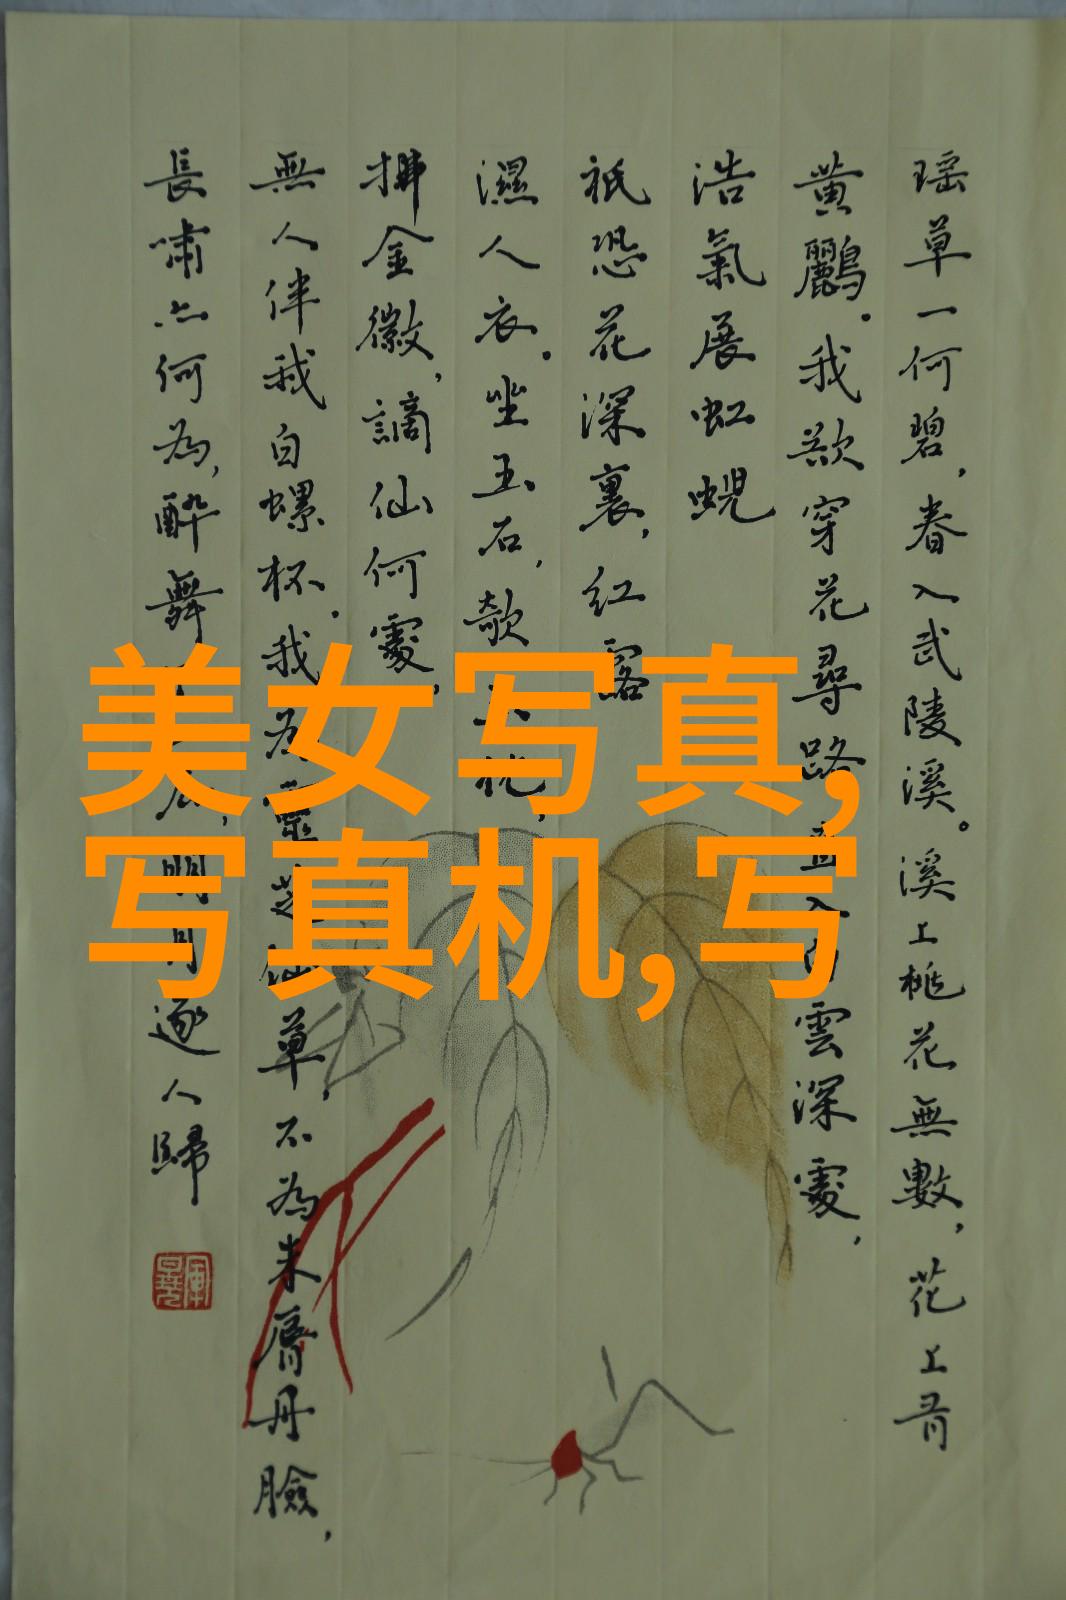 瑶草一何碧，春入武陵溪。溪上桃花無數，花上有
黄鸝。我欲穿花尋路，直入白雲深處，
浩氣展虹蜺
祇恐花深裏，紅露
濕人衣。坐玉石，欹玉枕，
拂金徽，謫仙何處，
無人伴我白螺杯。我為靈芝仙草，不為朱脣丹臉，
長嘯亦何為，醉舞，明月逐人歸
美女写真,
写真机,写